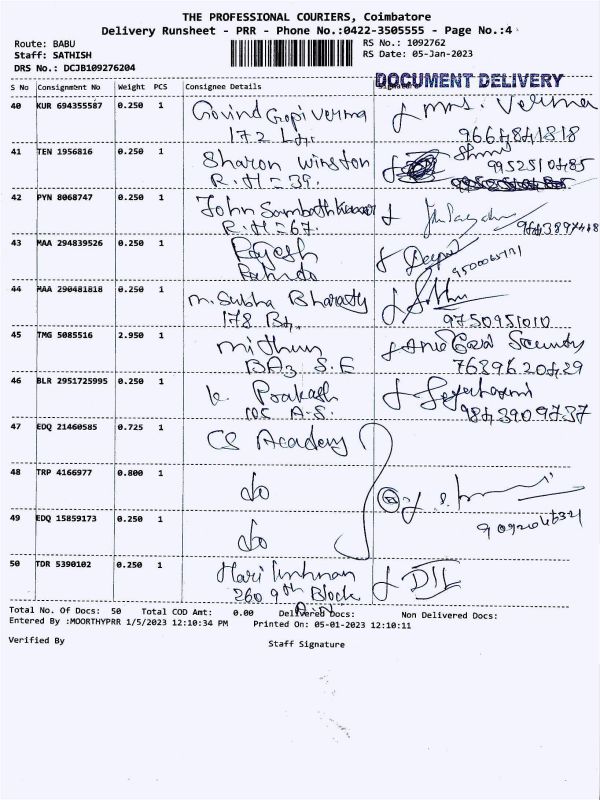 THE PROFESSIONAL COURIERS, Coimbatore
Delivery Runsheet - PRR - Phone No.:0422-3505555 - Page No.:4
Route: BABU
Staff: SATHISH
DRS No.: DCJB109276204
RS No.: 1092762
RS Date: 05-Jan-2023
DOCUMENT DELIVERY
S No Consignment No Weight PCS Consignee Details
40 KUR 694355587 0.250 1 Govind Gopi Verma Mrs. Verma
172 9664841818
41 TEN 1956816 0.250 1 Sharon Winston
R.H=39. 9952510485
42 PYN 8068747 0.250 1 John Sambath Kumar
R.H=67. 9643897448
43 MAA 294839526 0.250 1 Rajesh Deepa
44 MAA 290481818 0.250 1 M. Subha Bharathy
178 9750951010
45 TMG 5085516 2.950 1 Mithun Security
BA3 S.E 7639620429
46 BLR 2951725995 0.250 1 K. Prakash
105 A-S. 9843909737
47 EDQ 21460585 0.725 1 CS Academy
48 TRP 4166977 0.800 1 do
49 EDQ 15859173 0.250 1 do
50 TDR 5390102 0.250 1 Hari Krishnan
260 9th Block
Total No. Of Docs: 50 Total COD Amt: 0.00 Delivered Docs: Non Delivered Docs:
Entered By :MOORTHYPRR 1/5/2023 12:10:34 PM Printed On: 05-01-2023 12:10:11
Verified By Staff Signature